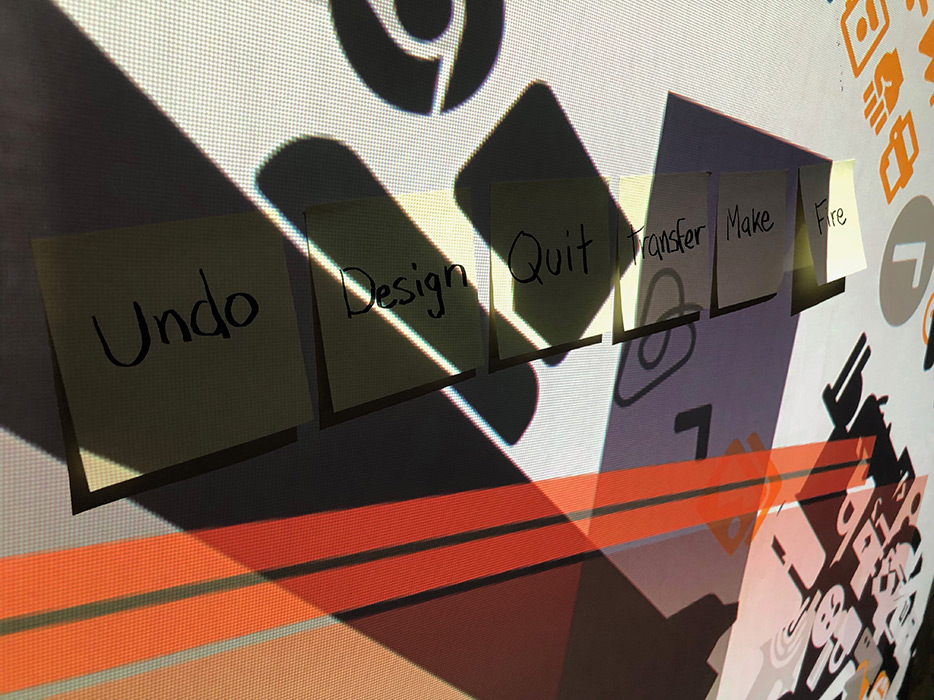 Undo
Design
Quit
Transfer
Make
Fire